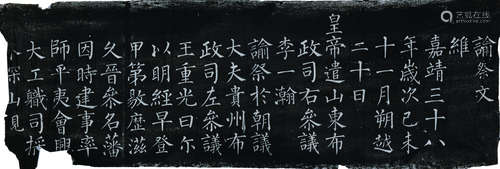 諭祭文
維
嘉靖三十八
年歲次己未
十一月朔越
二十日
皇帝遣山東布
政司右參議
李一瀚
諭祭於朝議
大夫貴州布
政司左參議
王重光曰尔
以明經早登
甲第敭歷滋
久晉參名藩
因時建事率
師平夷會興
大工職司採
木深山見